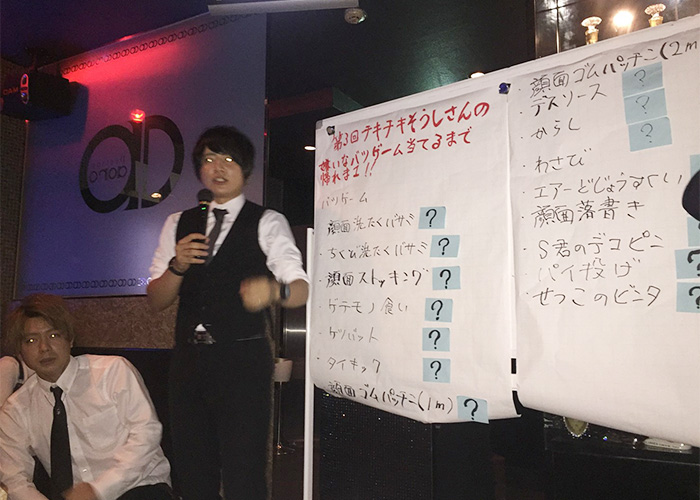 第3回チキチキそうしさんの
嫌いなバツゲーム当てるまで
帰れま工!!
バツゲーム
・顔面洗たくバサミ ?
・ちくび洗たくバサミ ?
・顔面ストッキング ?
・ゲテモノ食い ?
・ケツバット ?
・タイキック ?
・顔面ゴムパッチン(1m) ?
・顔面ゴムパッチン(2m)
・デスソース ?
・からし ?
・わさび ?
・エアーどじょうすくい
・顔面落書き
・S君のデコピン
・パイ投げ
・せつこのビンタ
aore